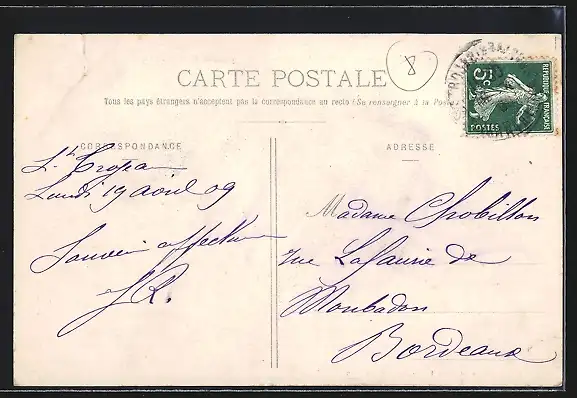 8
CARTE POSTALE
Tous les pays étrangers n'acceptent pas la correspondance au recto (Se renseigner à la Poste)
5c
REPUBLIQUE FRANÇAISE
POSTES
CORRESPONDANCE
St Tropez
Lundi 19 avril 09
Souvenir affectueux
J.R.
ADRESSE
Madame Chobillon
rue Lafaurie de
Monbadon
Bordeaux